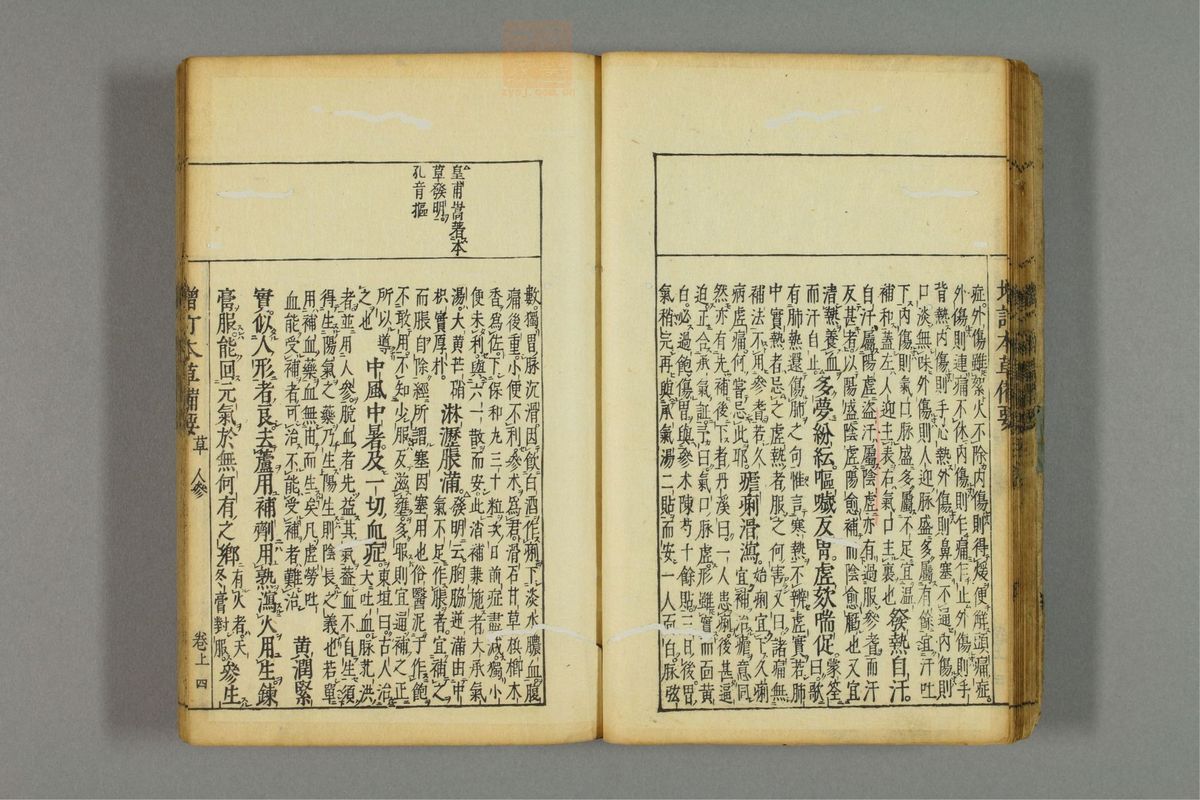 增訂本草備要
症。外傷雖絮火不除。內傷則得煖便解。頭痛症。
外傷則連痛不休。內傷則乍痛乍止。外傷則手
背熱。內傷則手心熱。外傷則鼻塞不通。內傷則
口淡無味。外傷則人迎脉盛。多屬有餘。宜汗吐
下。內傷則氣口脉盛。多屬不足。宜溫
補和。蓋左人迎主表。右氣口主裏也。發熱自汗。
自汗屬陽虛。盜汗屬陰虛。亦有過服參耆而汗
反甚者。以陽盛陰虛。陽愈補而陰愈虧也。又宜
清熱養血
而汗自止。多夢紛紜。嘔噦反胃。虛欬喘促。蒙筌曰。歌
有肺熱還傷肺之句。惟言寒熱。不辨虛實。若肺
中實熱者忌之。虛熱者服之何害。又曰。諸痛無
補法。不用參耆。若久
病虛痛。何嘗忌此耶。瘧痢滑瀉。始痢宜下。久痢
宜補。治瘧意同。
然亦有先補後下者。丹溪曰。一人患痢後甚逼
迫。正合承氣証。予曰。氣口脉虛。形雖實而面黃
白。必過飽傷胃。與參朮陳芍十餘貼。三日後胃
氣稍完。再與承氣湯二貼而安。一人面白脉弦
皇甫嵩著本
草發明。
孔音摳
數。獨胃脉沉滑。因飲白酒作痢。下淡水膿血。腹
痛後重。小便不利。參朮爲君。滑石甘草檳榔木
香爲佐。下保和丸三十粒。次日前症盡減。獨小
便未利。與六一散而安。此消補兼施者。大承氣
湯。大黃芒硝
枳實厚朴。淋瀝脹滿。發明云。胸脇逆滿。由中
氣不足作脹者。宜補之
而脹自除。經所謂塞因塞用也。俗醫泥于作飽
不敢用。不知少服反滋壅。多服則宣通。補之正
所以導
之也。中風中暑。及一切血症。東垣曰。古人治
大吐血。脉芤洪
者。並用人參。脫血者先益其氣。蓋血不自生。須
得生陽氣之藥乃生。陽生則陰長之義也。若單
用補血藥。血無由而生矣。凡虛勞吐
血。能受補者可治。不能受補者難治。黃潤緊
實。似人形者良。去蘆用。補劑用熟。瀉火用生。鍊
膏服。能回元氣於無何有之鄉。有火者。天
冬膏對服。參生
增訂本草備要 草 人參 卷上 四